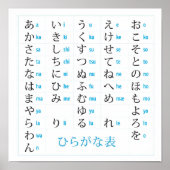 あ a い i う u え e お o
か ka き ki く ku け ke こ ko
さ sa し shi す su せ se そ so
た ta ち chi つ tsu て te と to
な na に ni ぬ nu ね ne の no
は ha ひ hi ふ fu へ he ほ ho
ま ma み mi む mu め me も mo
や ya ゆ yu よ yo
ら ra り ri る ru れ re ろ ro
わ wa を o
ん n
ひらがな表